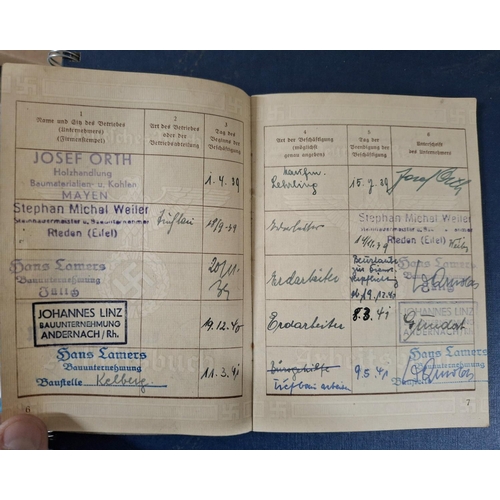 1
Name und Sitz des Betriebes
(Unternehmers)
(Firmenstempel)
2
Art des Betriebes
oder der
Betriebsabteilung
3
Tag des
Beginns der
Beschäftigung
JOSEF ORTH
Holzhandlung
Baumaterialien- u. Kohlen
MAYEN
1.4.39
Stephan Michael Weiler
Rieden (Eifel)
Hans Lamers
Bauunternehmung
Jülich
20/11.
39
JOHANNES LINZ
BAUUNTERNEHMUNG
ANDERNACH/Rh.
19.12.40
Hans Lamers
Bauunternehmung
Baustelle Kelberg
11.3.41
6
4
Art der Beschäftigung
(möglichst
genau angeben)
5
Tag der
Beendigung der
Beschäftigung
6
Unterschrift
des Unternehmers
Kaufm.
Lehrling
15.7.39
Josef Orth
Stephan Michael Weiler
Rieden (Eifel)
Erdarbeiter
Hans Lamers
Bauunternehmung
Erdarbeiter
8.3.41
JOHANNES LINZ
BAUUNTERNEHMUNG
ANDERNACH
Tiefbauarbeiter
9.5.41
Hans Lamers
Bauunternehmung
Baustelle
7